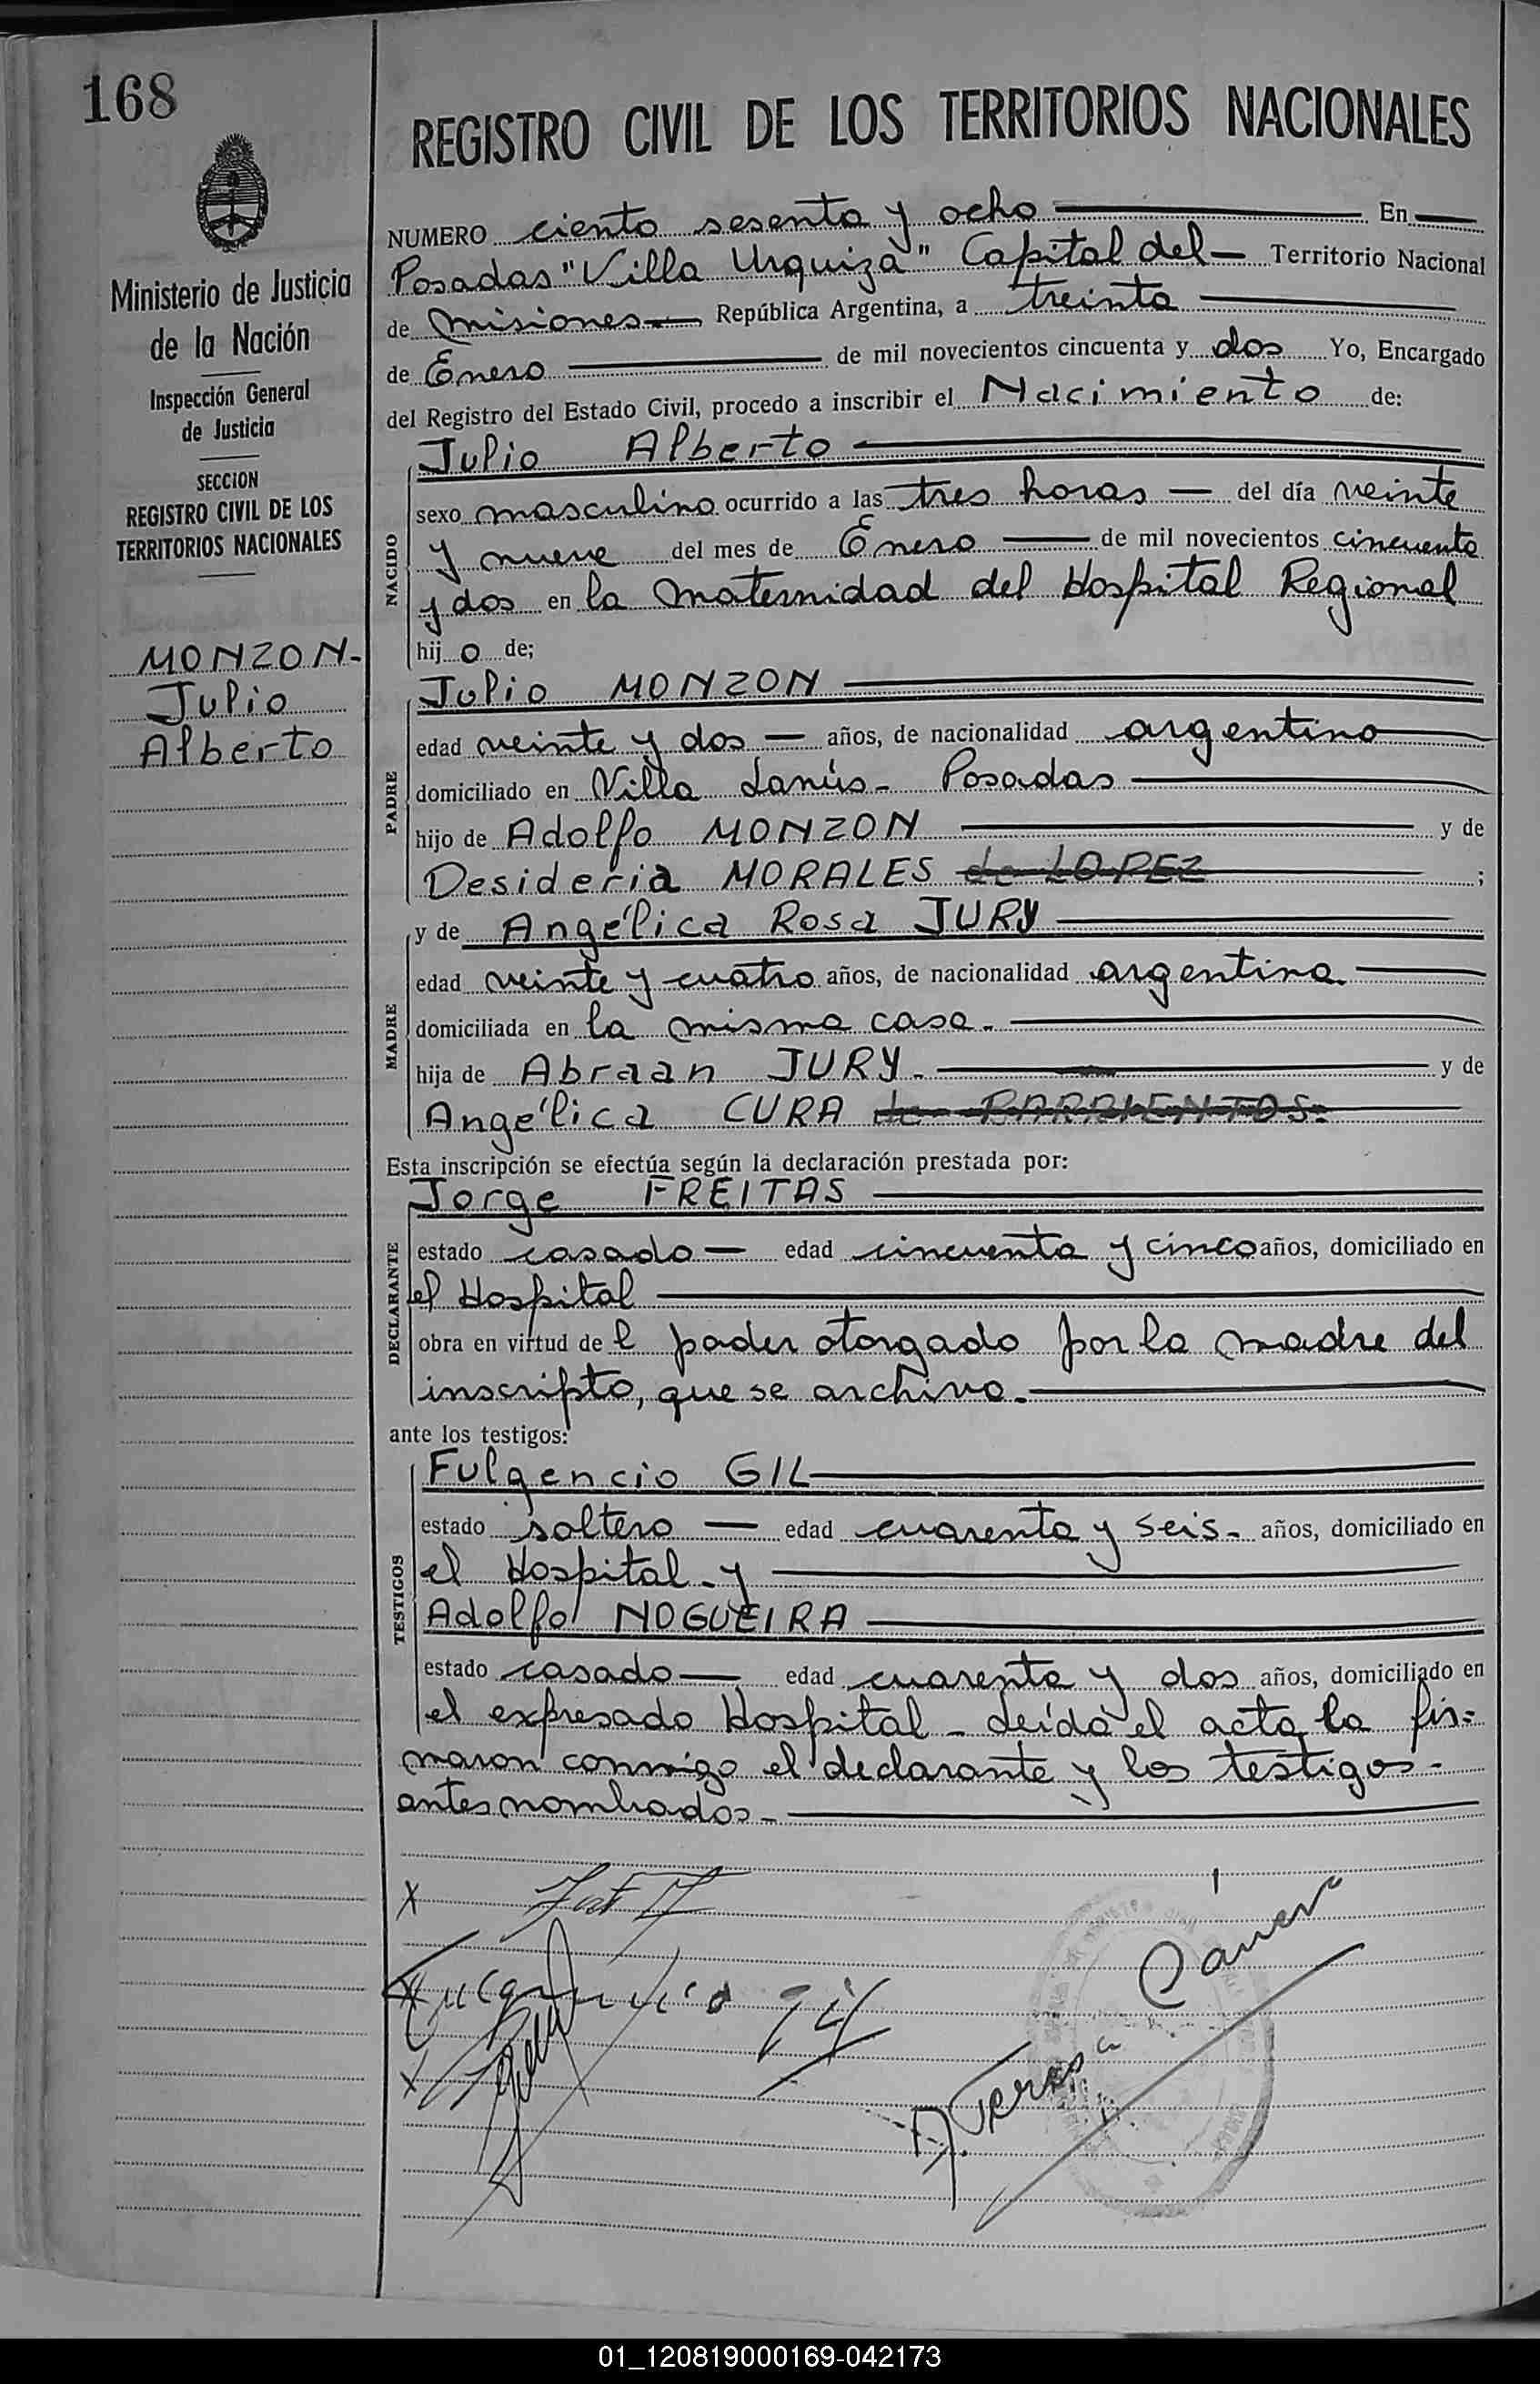 168
REGISTRO CIVIL DE LOS TERRITORIOS NACIONALES
Ministerio de Justicia
de la Nación
Inspección General
de Justicia
SECCION
REGISTRO CIVIL DE LOS
TERRITORIOS NACIONALES
MONZON-
Julio
Alberto
NUMERO ciento sesenta y ocho En
Posadas "Villa Urquiza" Capital del Territorio Nacional
de Misiones República Argentina, a treinta
de Enero de mil novecientos cincuenta y dos Yo, Encargado
del Registro del Estado Civil, procedo a inscribir el Nacimiento de:
NACIDO
Julio Alberto
sexo masculino ocurrido a las tres horas del día veinte
y nueve del mes de Enero de mil novecientos cincuenta
y dos en la maternidad del Hospital Regional
hij o de;
PADRE
Julio MONZON
edad veinte y dos años, de nacionalidad argentino
domiciliado en Villa Lanús- Posadas
hijo de Adolfo MONZON y de
Desideria MORALES de LOPEZ ;
MADRE
y de Angélica Rosa JURY
edad veinte y cuatro años, de nacionalidad argentina
domiciliada en la misma casa-
hija de Abraan JURY- y de
Angélica CURA de BARRIENTOS-
Esta inscripción se efectúa según la declaración prestada por:
DECLARANTE
Jorge FREITAS
estado casado edad cincuenta y cinco años, domiciliado en
el Hospital
obra en virtud de l poder otorgado por la madre del
inscripto, que se archiva-
ante los testigos:
TESTIGOS
Fulgencio GIL
estado soltero edad cuarenta y seis- años, domiciliado en
el Hospital-y
Adolfo NOGUEIRA
estado casado edad cuarenta y dos años, domiciliado en
el expresado Hospital- Leída el acta la fir=
maron conmigo el declarante y los testigos-
antes nombrados-
x
Fulgencio gil
x
A. Teresa
01_120819000169-042173